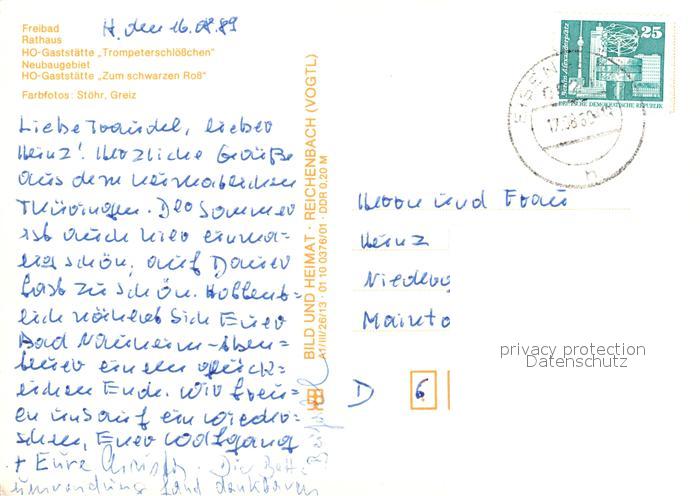 H. den 16.08.89
Freibad
Rathaus
HO-Gaststätte „Trompeterschlößchen“
Neubaugebiet
HO-Gaststätte „Zum schwarzen Roß“
Farbfotos: Stöhr, Greiz
Liebe Traudel, lieber
Heinz! Herzliche Grüße
aus dem heimatlichen
Thüringen. Der Sommer
ist auch hier einma=
lig schön, auf Dauer
fast zu schön. Hoffent=
lich nähert sich Euer
Bad Nauheim-Aben=
teuer einem glück=
lichen Ende. Wir freu=
en uns auf ein Wieder=
sehen, Euer Wolfgang
+ Eure Christa. Die Bett=
umrandung fand dankbaren
BILD UND HEIMAT · REICHENBACH (VOGTL)
A1/III/26/13 · 01 10 0376/01 · DDR 0,20 M
25
Berlin, Alexanderplatz
DEUTSCHE DEMOKRATISCHE REPUBLIK
EISEN
17.08.89
h
Herrn und Frau
Heinz
Niederg
Mainto
D 6
privacy protection
Datenschutz